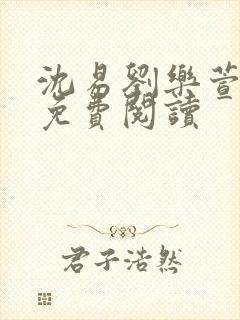 沈易劉樂萱
免費閱讀
君子浩然